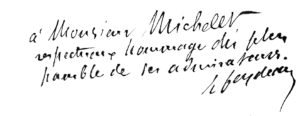 à Monsieur Michelet
respectueux hommage du plus
humble de ses admirateurs.